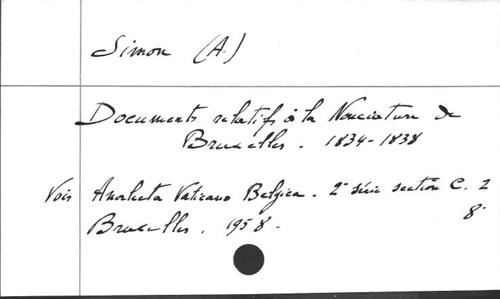 Simon (A.)
Documents relatifs à la Nonciature de
Bruxelles. 1834-1838
Voir Analecta Vaticano Belgica. 2e série section C. 2
Bruxelles. 1958. 8°